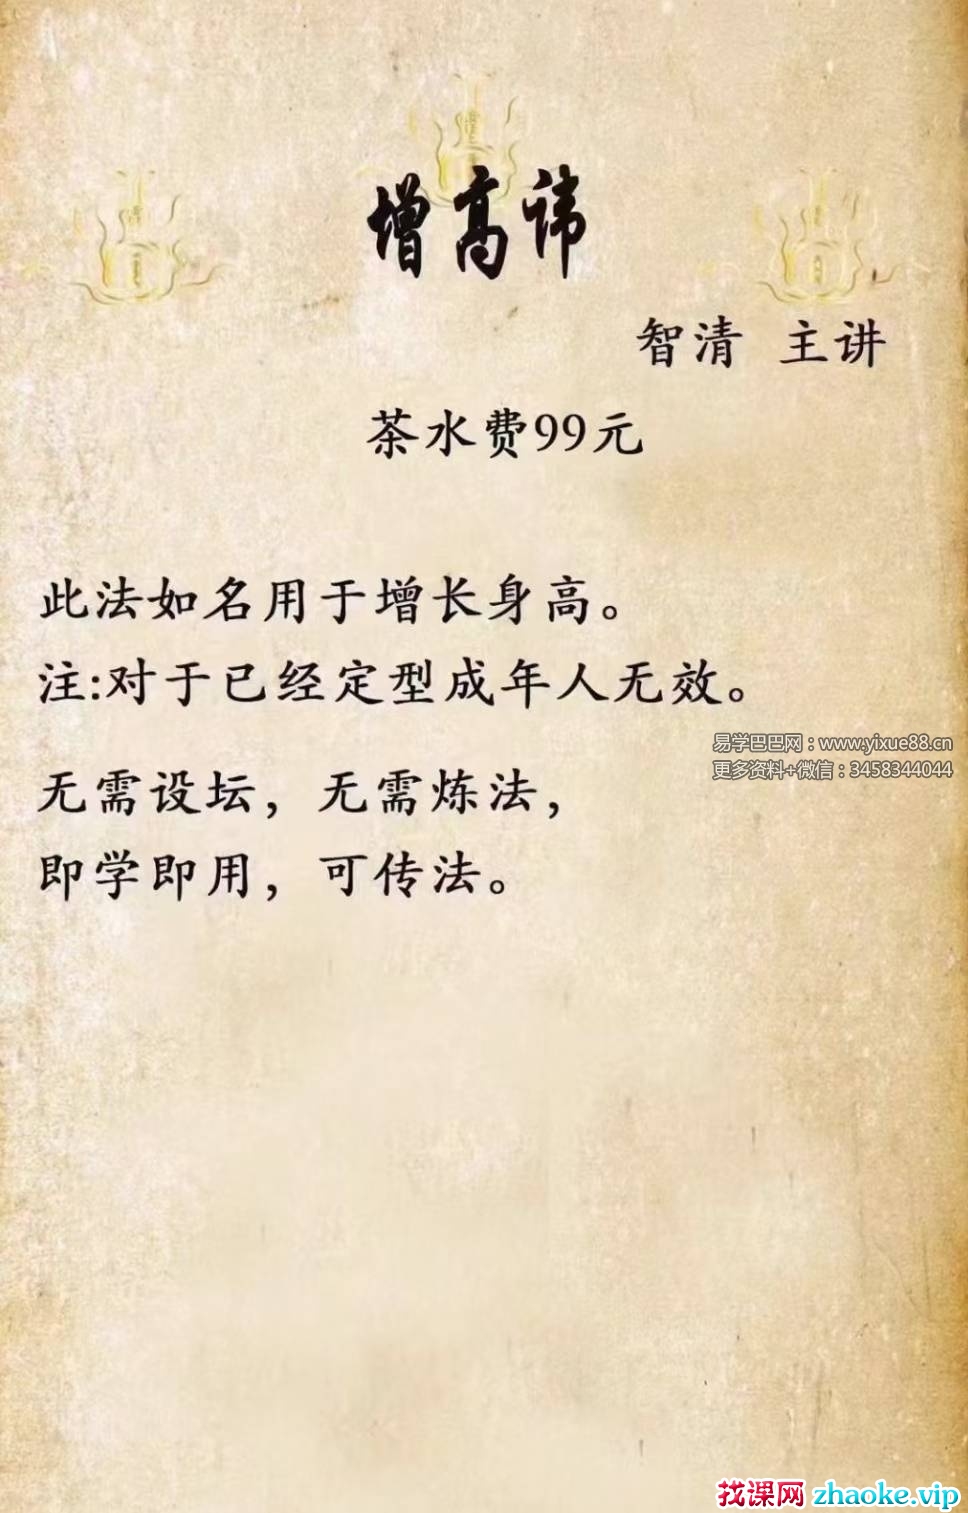 增高讳
智清 主讲
茶水费99元
此法如名用于增长身高。
注:对于已经定型成年人无效。
易学巴巴网：www.yixue88.cn
更多资料+微信：3458344044
无需设坛，无需炼法，
即学即用，可传法。
找课网 zhaoke.vip